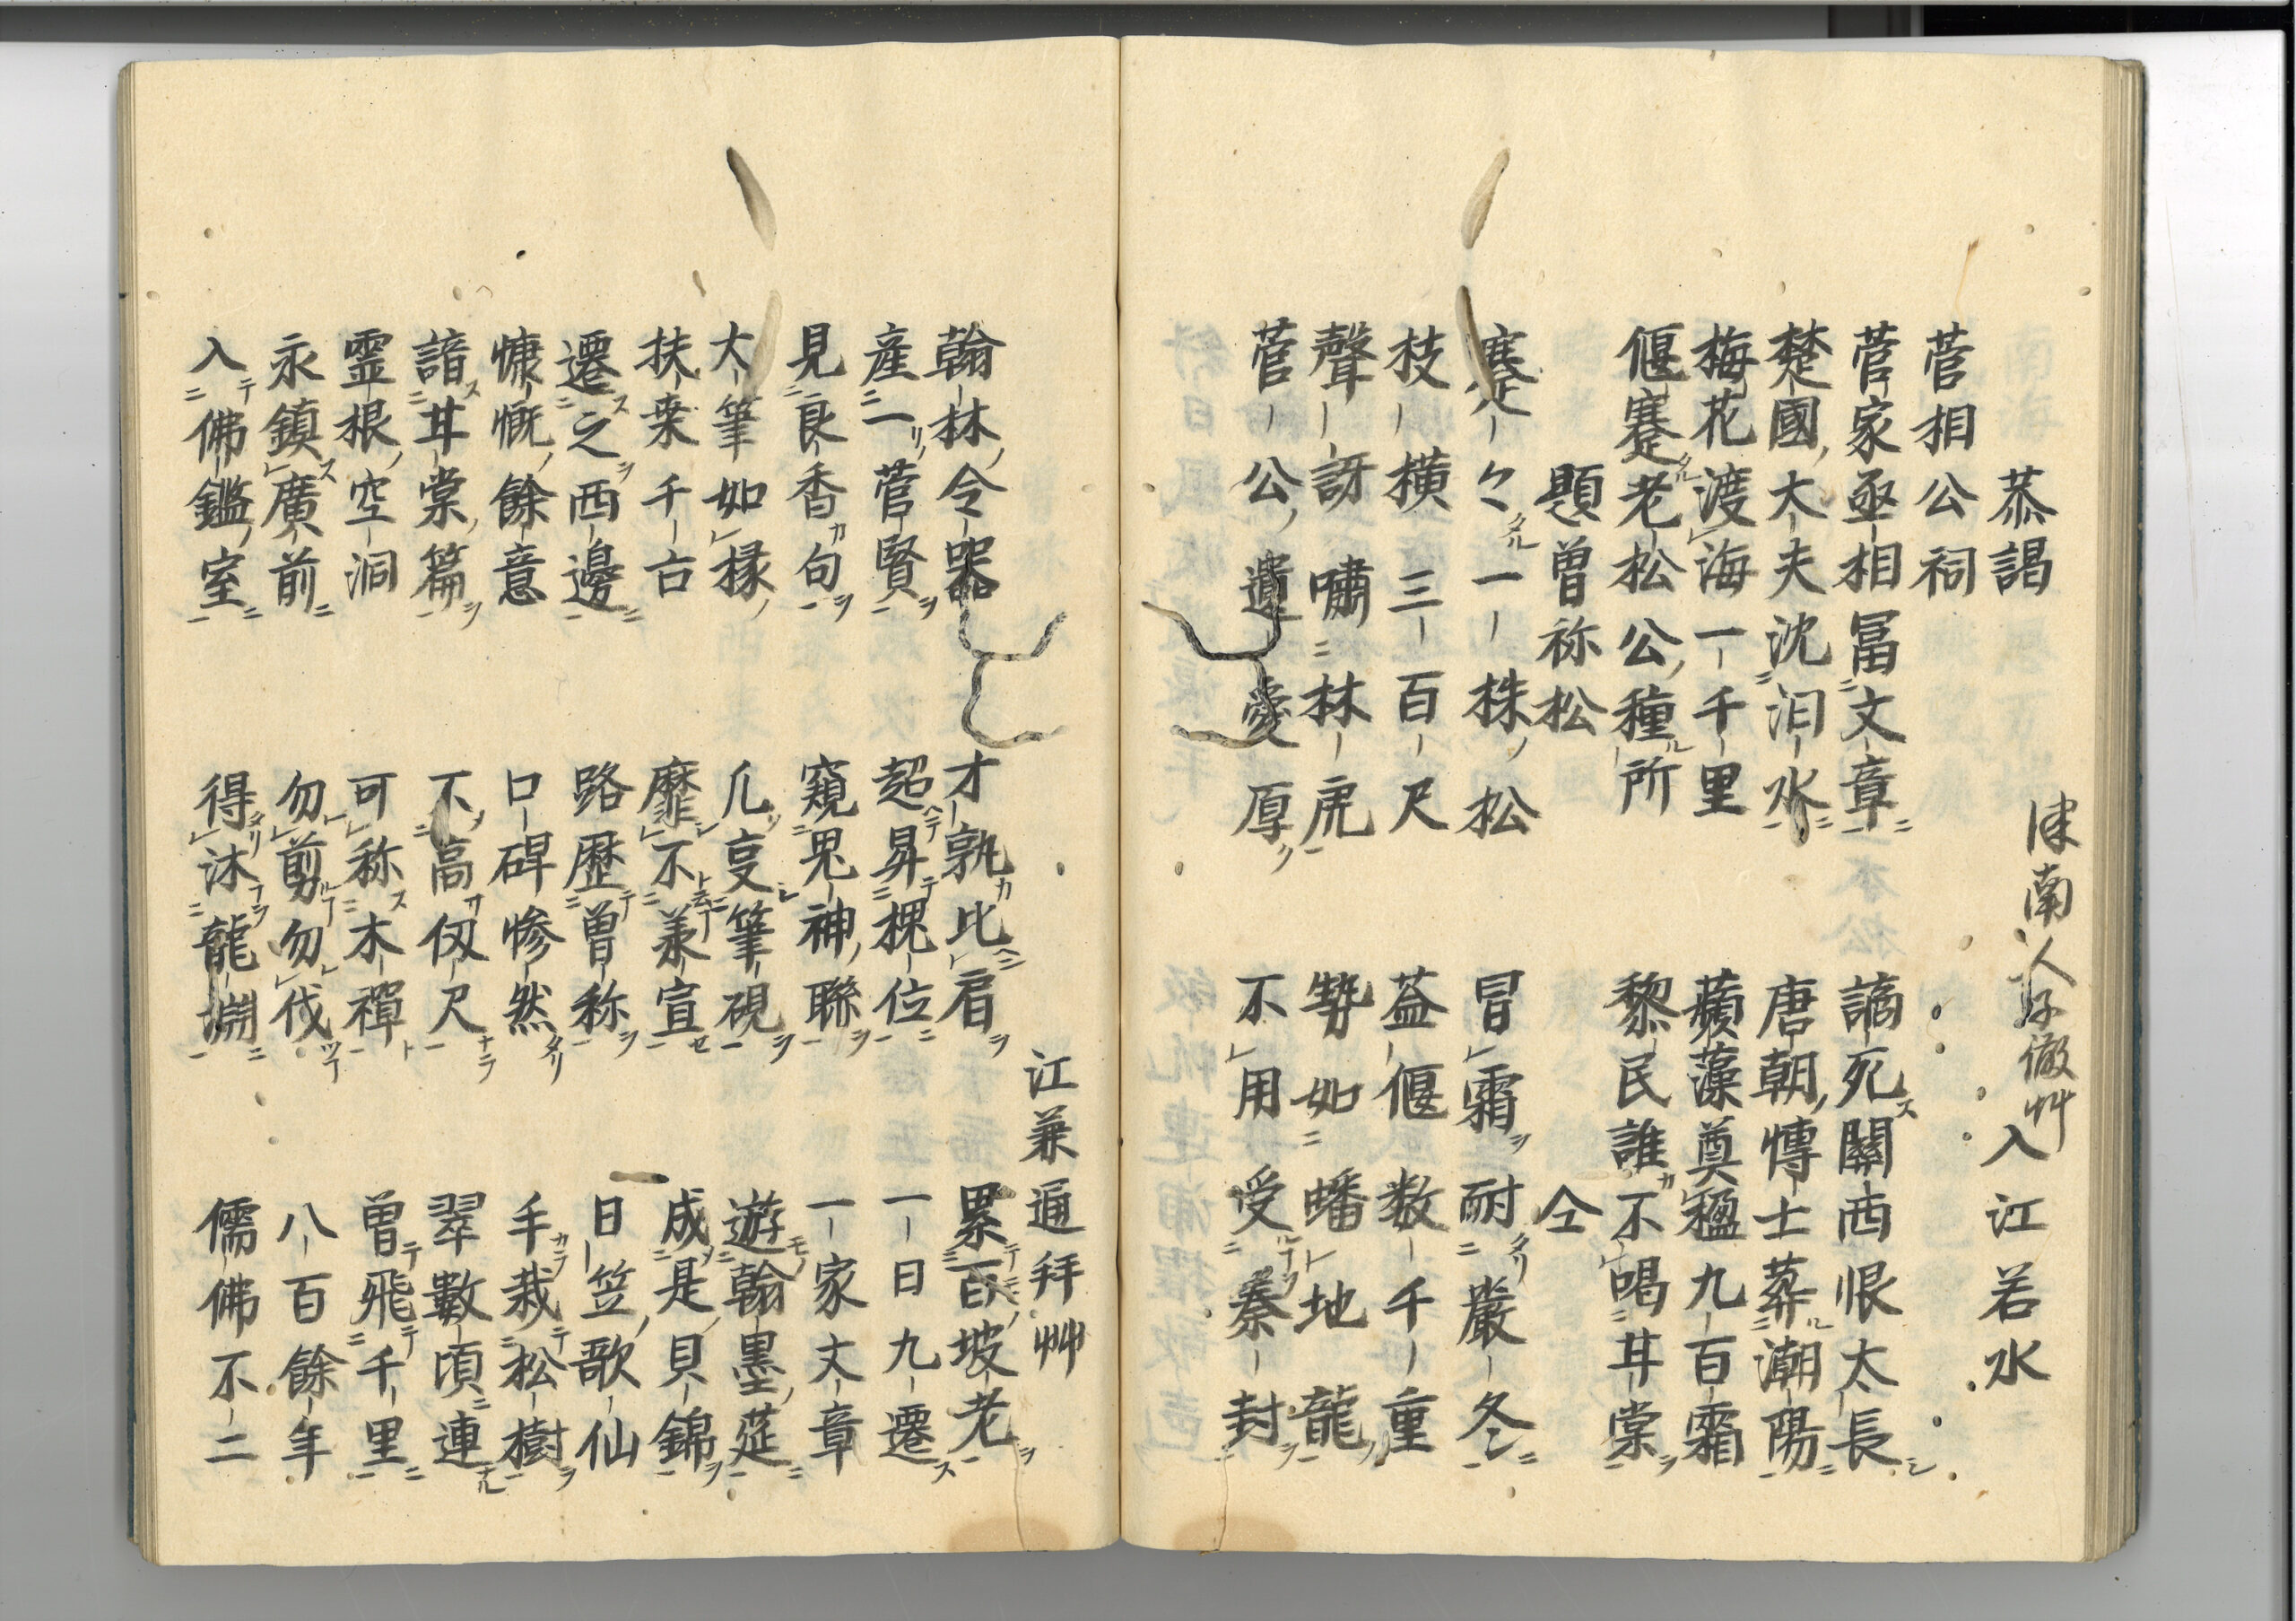 恭謁 津南人 艸 入江若水
菅相公祠
菅家亟相冨文章 謫死關西恨太長
楚國大夫沈汨水 唐朝博士葬潮陽
梅花渡海一千里 蘋藻奠楹九百霜
偃蹇老松公種所 黎民誰不喝甘棠
題曽祢松 仝
蹇々一株松 冒霜耐嚴冬
枝横三百尺 葢偃数千重
聲訝嘯林乕 勢如蟠地龍
菅公遺愛厚 不用受秦封
江兼通拜艸
翰林令器 才孰比肩 累百坡老
産一菅賢 超昇槐位 一日九遷
見良香句 窺鬼神聯 一家文章
大筆如椽 几 筆硯 遊翰墨莚
扶桒千古 靡不羕宣 成是貝錦
遷之西邊 路歴曽称 日笠歌仙
慷慨餘意 口碑惨然 手栽松樹
諳甘棠篇 不高仭尺 翠數頃連
霊根空洞 可称木禪 曽飛千里
永鎮廣前 勿剪勿伐 八百餘年
入佛鑑室 得沐龍淵 儒佛不二